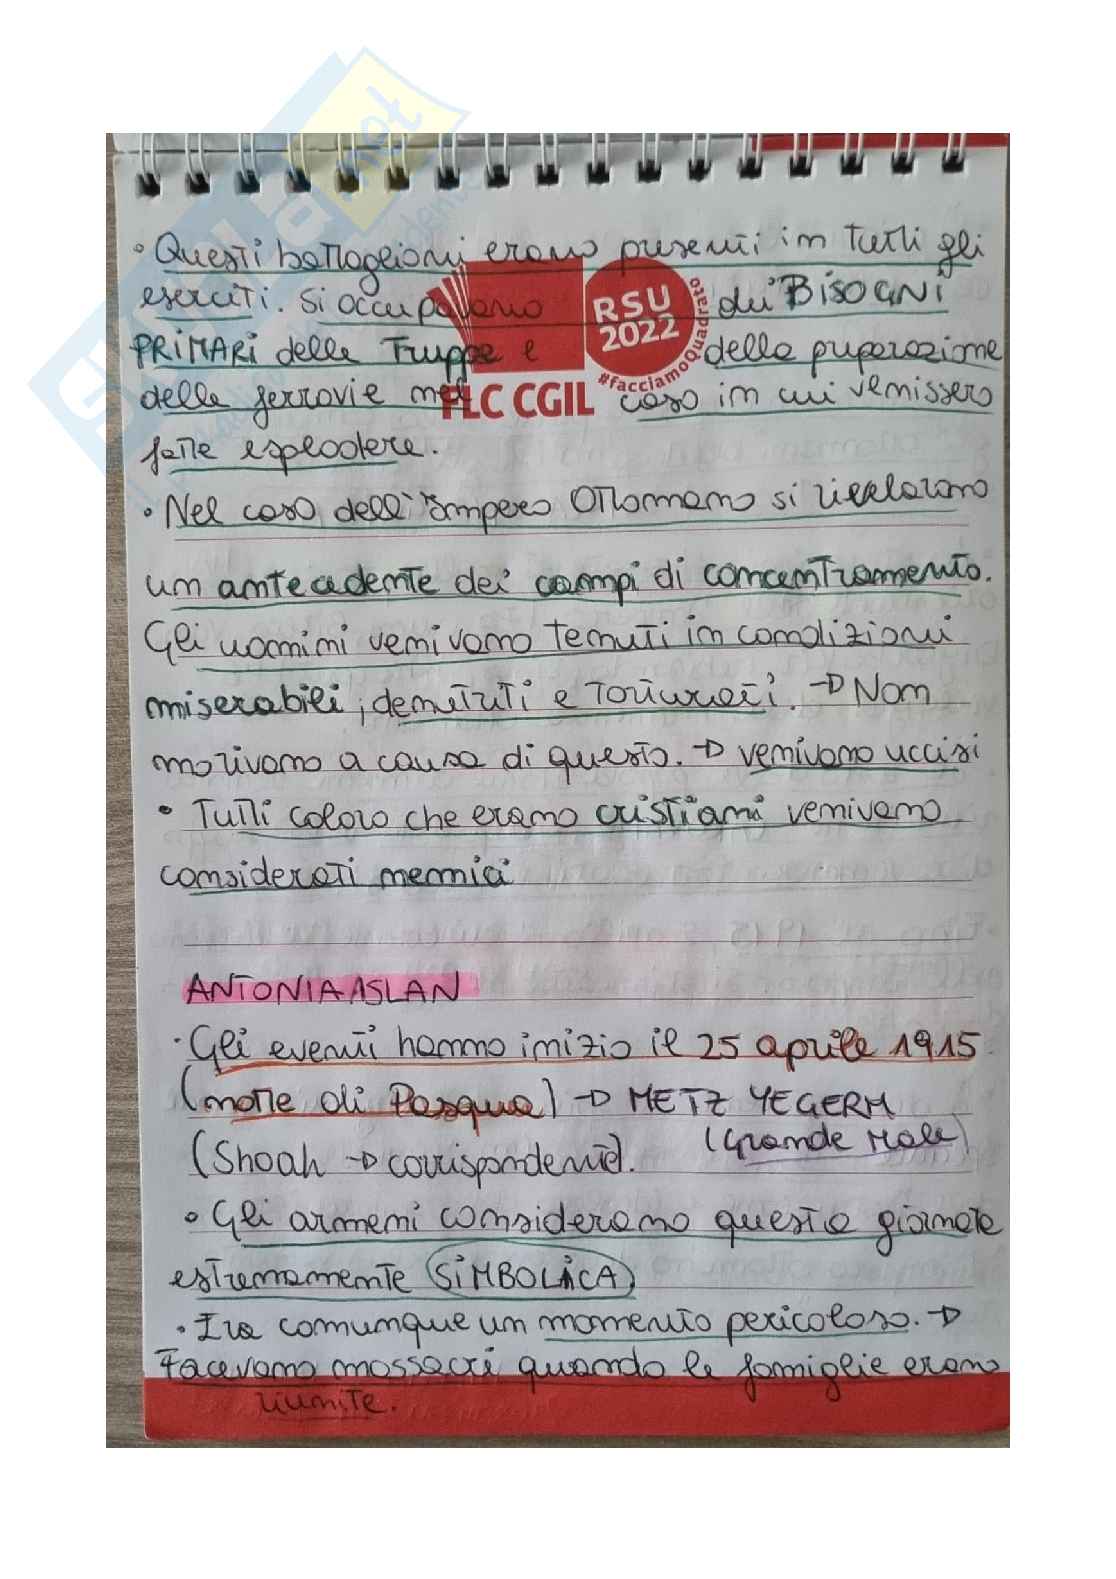 • Questi battaglioni erano presenti in tutti gli
eserciti. Si occupavano dei BISOGNI
PRIMARI delle Truppe e della preparazione
delle ferrovie nel caso in cui venissero
fatte esplodere.
RSU
2022
#facciamoQuadrato
FLC CGIL
• Nel caso dell'Impero Ottomano si rivelarono
un antecedente dei campi di concentramento.
Gli uomini venivano tenuti in condizioni
miserabili, denutriti e torturati. → Non
morivano a causa di questo. → venivano uccisi
• Tutti coloro che erano cristiani venivano
considerati nemici
ANTONIA ASLAN
• Gli eventi hanno inizio il 25 aprile 1915
(notte di Pasqua) → METZ YEGERM
(Grande Male)
(Shoah → corrispondente).
• Gli armeni considerano questa giornata
estremamente SIMBOLICA
• Era comunque un momento pericoloso. →
Facevano massacri quando le famiglie erano
riunite.